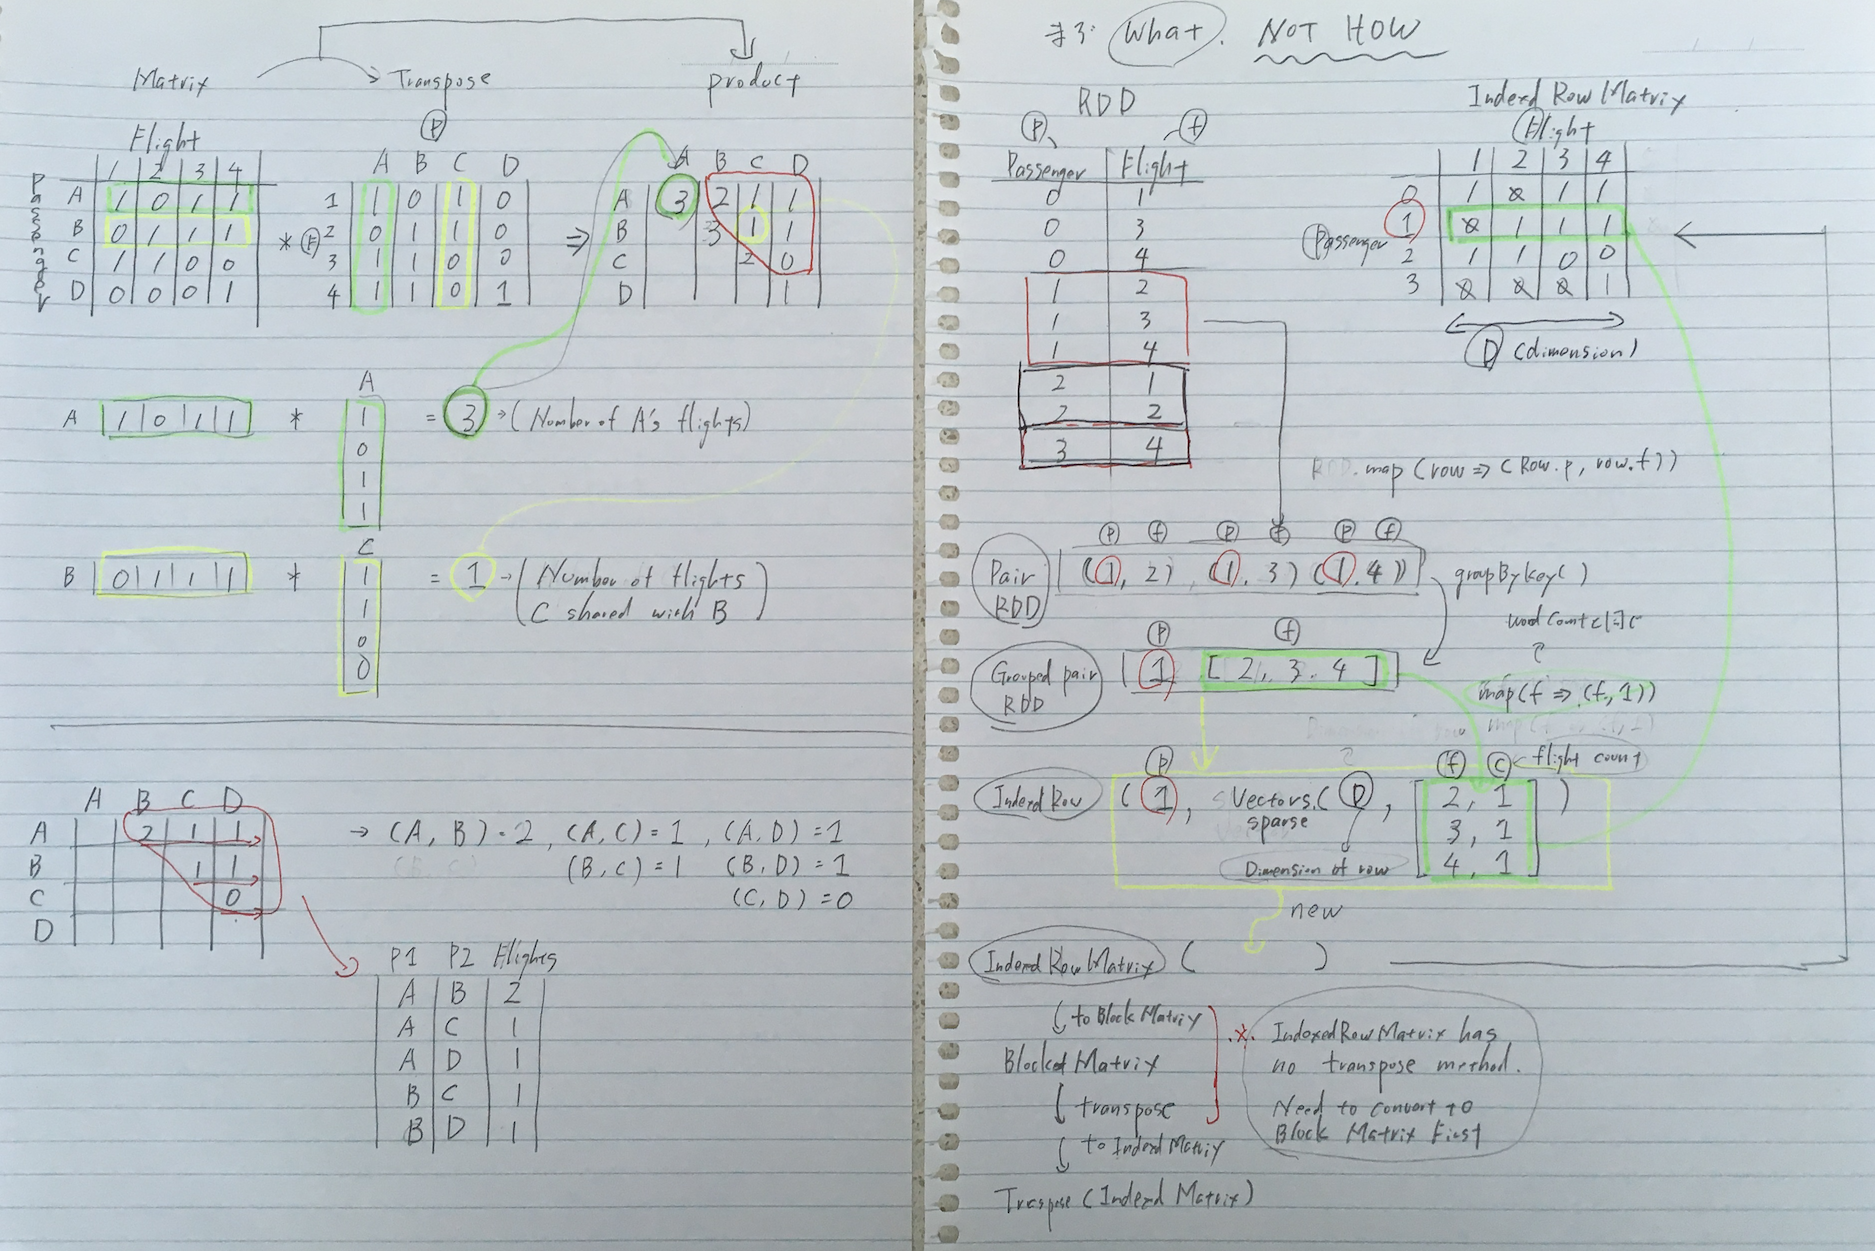 Matrix Transpose product
Flight
Passenger
1 2 3 4
A 1 0 1 1
B 0 1 1 1
C 1 1 0 0
D 0 0 0 1
*
P
A B C D
F
1 1 0 1 0
2 0 1 1 0
3 1 1 0 0
4 1 1 0 1
⇒
A B C D
A 3 2 1 1
B 3 1 1
C 2 0
D 1
A
A 1 0 1 1 * = 3 → (Number of A's flights)
1
0
1
1
C
B 0 1 1 1 * = 1 → (Number of flights
C shared with B)
1
1
0
0
A B C D
A 2 1 1
B 1 1
C 0
D
→ (A, B) = 2, (A, C) = 1, (A, D) = 1
(B, C) = 1 (B, D) = 1
(C, D) = 0
P1 P2 Flights
A B 2
A C 1
A D 1
B C 1
B D 1
#3: What. NOT HOW
RDD
P f
Passenger Flight
0 1
0 3
0 4
1 2
1 3
1 4
2 1
2 2
3 4
Indexd Row Matrix
Flight
1 2 3 4
Passenger
0 1 0 1 1
1 0 1 1 1
2 1 1 0 0
3 0 0 0 1
D (dimension)
RDD.map (row => (Row.p, row.f))
P f P f P f
Pair RDD (1, 2) (1, 3) (1, 4)
groupByKey()
P f
Grouped pair RDD 1 [2, 3, 4]
map(f => (f, 1))
P f C ← flight count
Indexed Row (1, Vectors.sparse (D, [2, 1
3, 1
4, 1] )
Dimension of row
new
Indexed Row Matrix ( )
to Block Matrix
Blocked Matrix
transpose
to Indexd Matrix
Trcspose (Indexd Matrix)
※. IndexedRowMatrix has
no transpose method.
Need to convert to
Block Matrix First